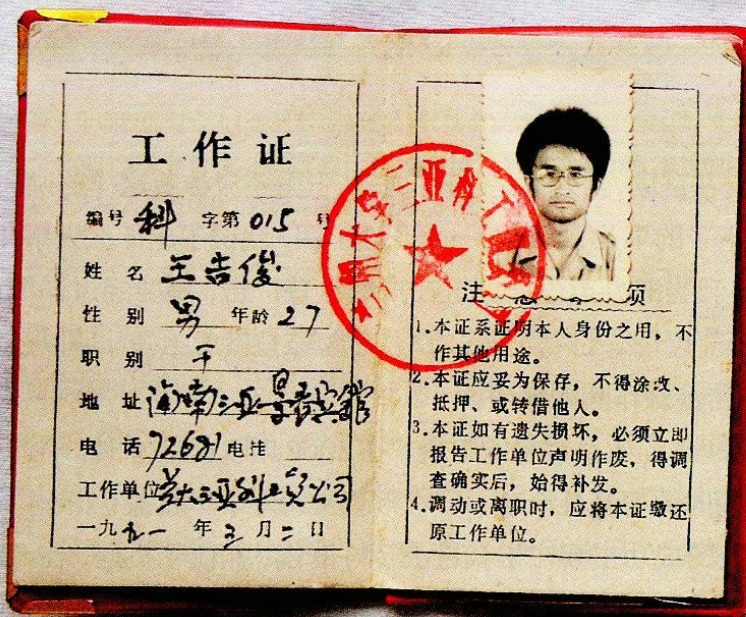 工作证
编号 科 字第 015 号
姓名 王吉俊
性别 男 年龄 27
职别 干
地址 海南三亚
电话 72681 电挂
工作单位 兰大三亚科工贸公司
一九九一年三月二日
大学三亚科工
注 项
1.本证系证明本人身份之用，不
作其他用途。
2.本证应妥为保存，不得涂改、
抵押、或转借他人。
3.本证如有遗失损坏，必须立即
报告工作单位声明作废，得调
查确实后，始得补发。
4.调动或离职时，应将本证缴还
原工作单位。